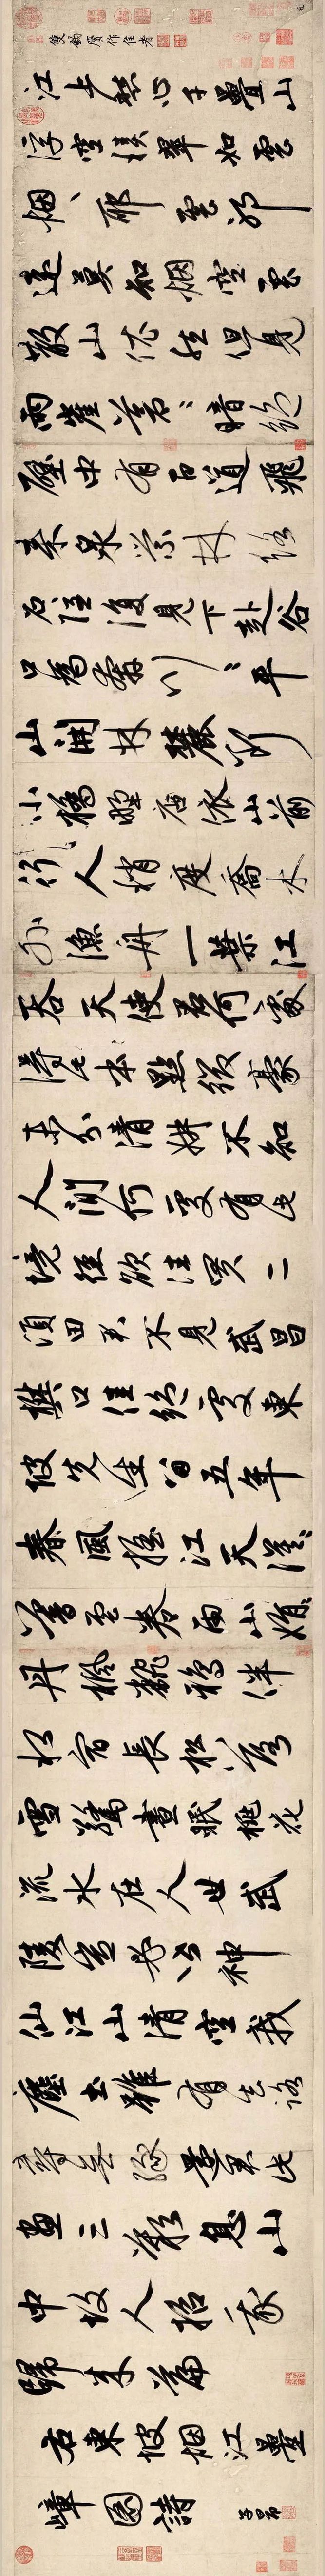 雙鈎廓作佳者
江上愁心千疊山
浮空積翠如雲
烟〻耶雲耶
遠莫知烟空雲
散山依然但見
兩崖蒼〻暗絕
壁中有百道飛
來泉縈林絡
石隱復見下赴谷
口為奔川〻平
山開林麓斷
小橋野店依山前
行人稍度喬木
外漁舟一葉江
吞天使君何處
得此本點綴豪
末分清妍不知
人間何處有此
境徑欲往買二
頃田君不見武昌
樊口佳絕處東
坡先生留五年
春風搖江天漠〻
暮雲卷雨山娟〻
丹楓翻鴉伴
水宿長松落
雪驚晝眠桃花
流水在人世武
陵豈必皆神
仙江山清空我
塵土雖有去路
尋無緣還君此
畫三歎息山
中故人招我
歸來篇
右東坡烟江疊
嶂圖詩
子昂